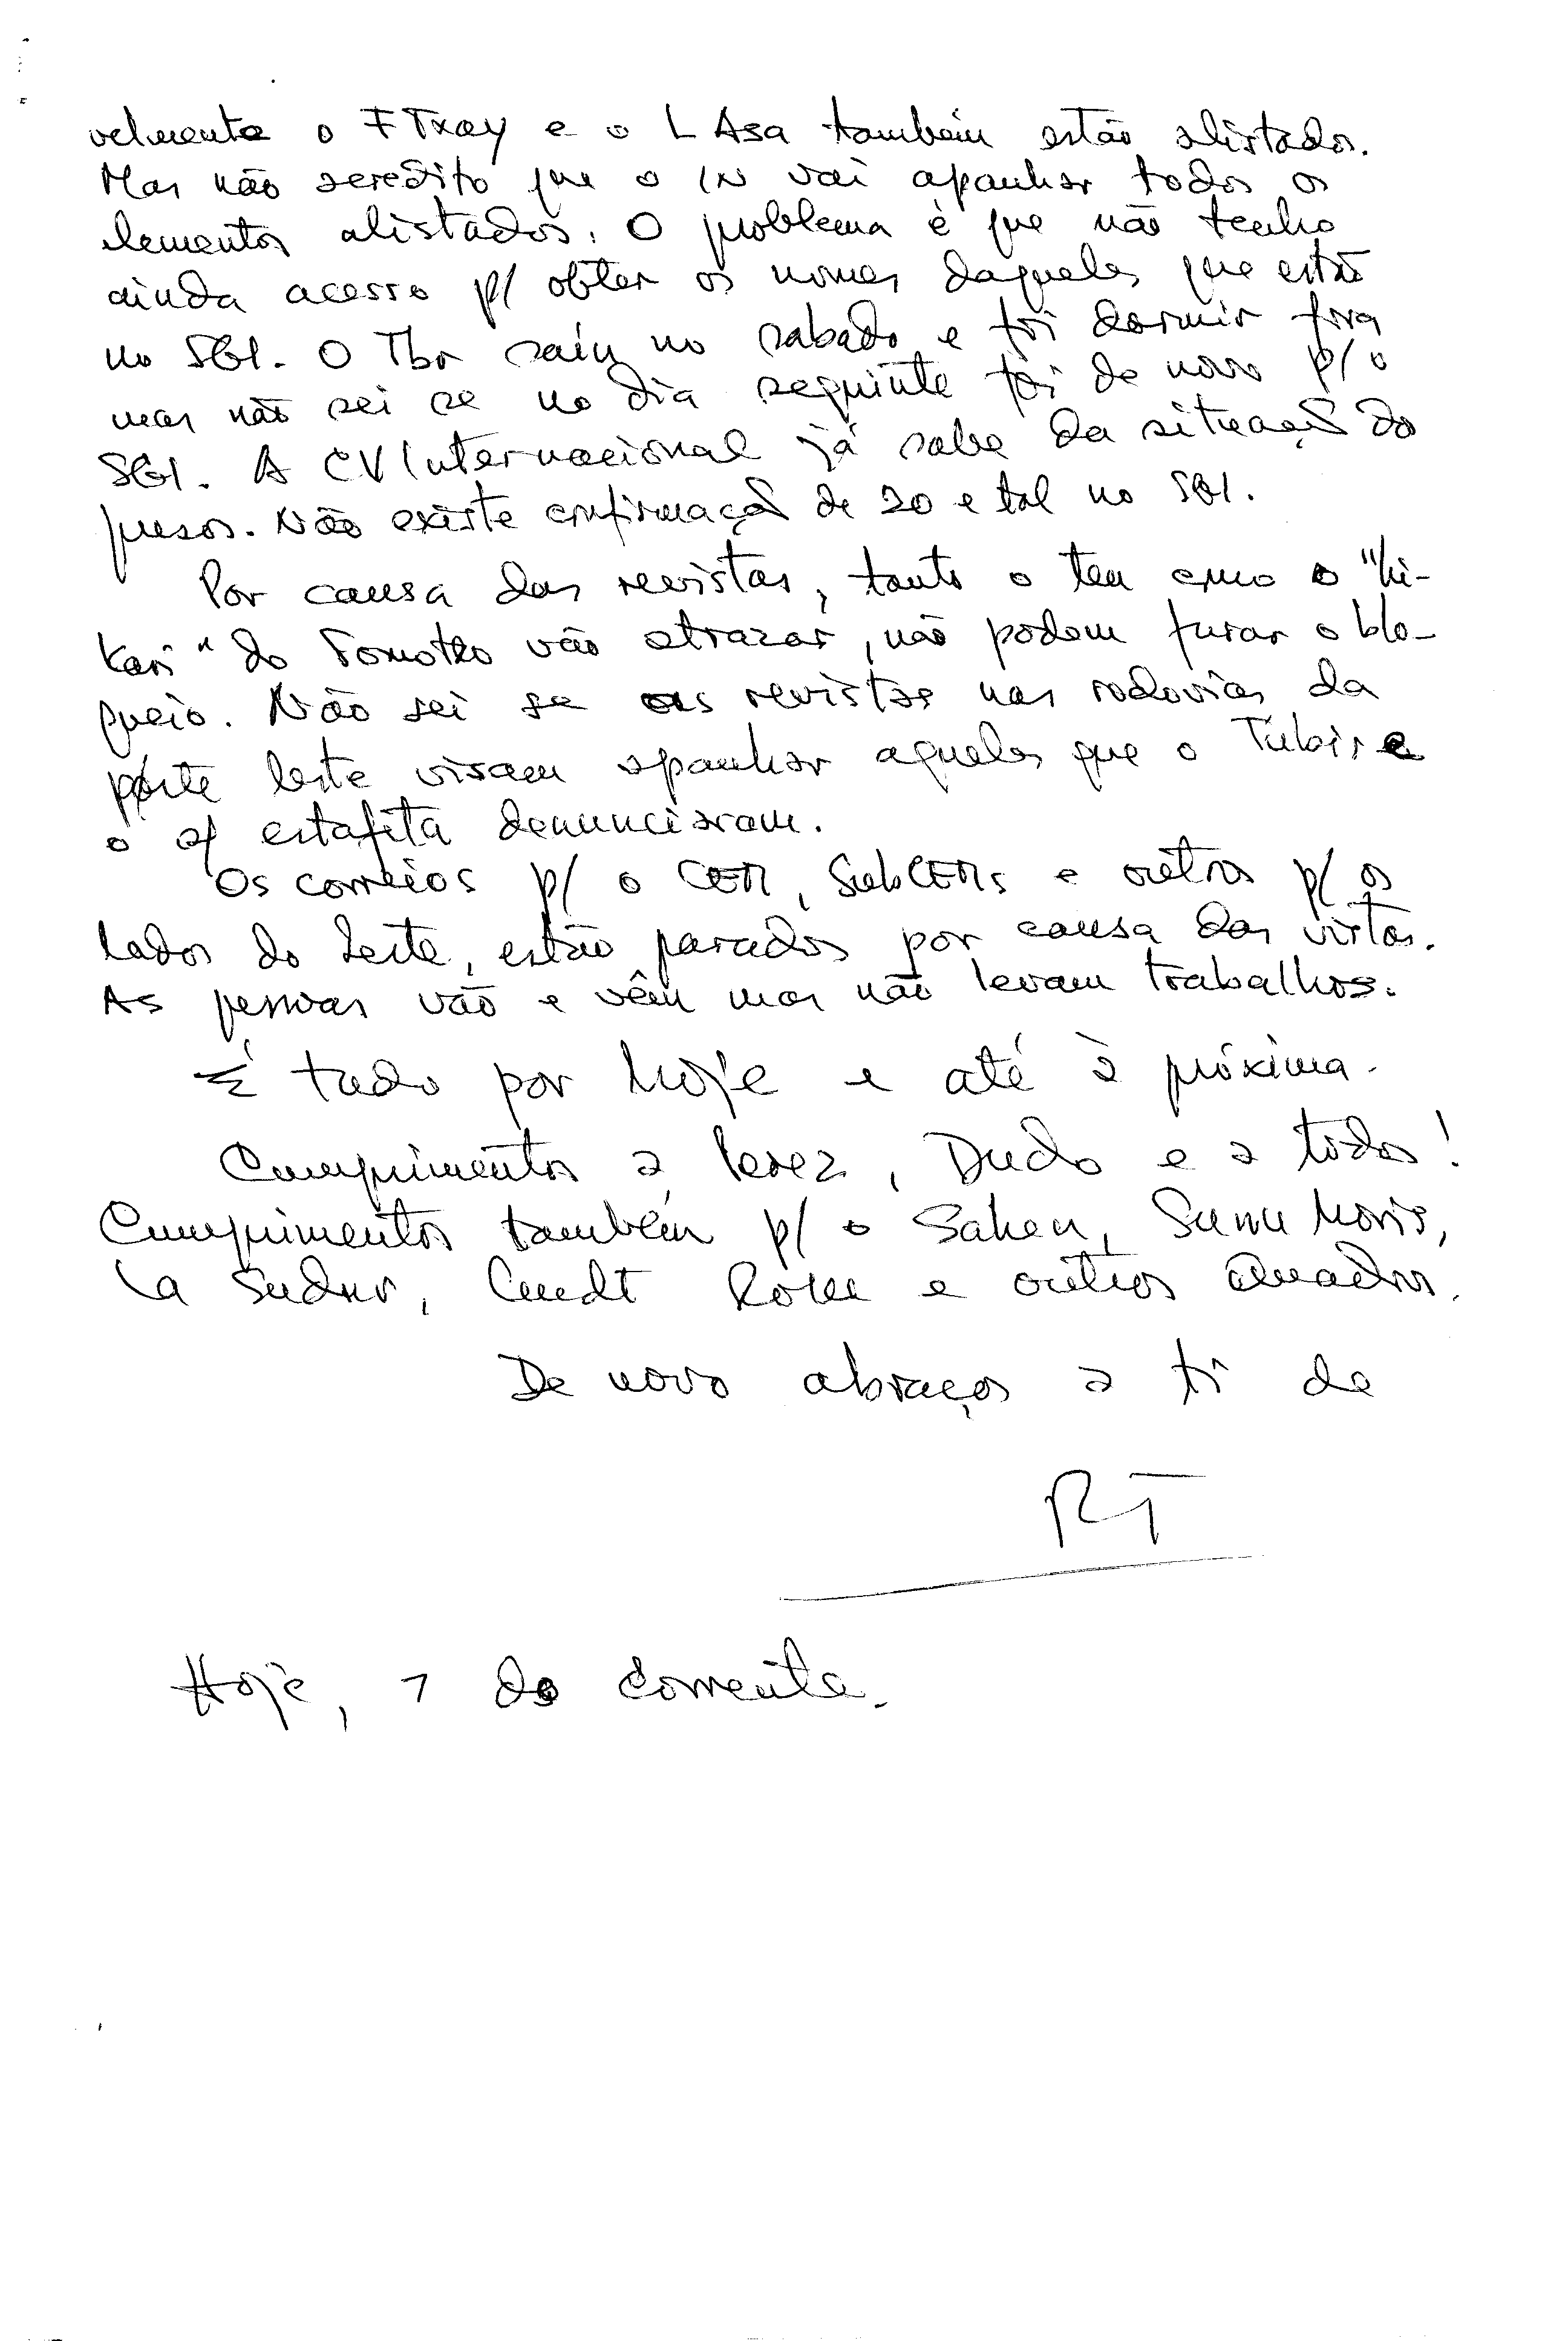 velmente o F Txay e o L Asa também estão alistados.
Mas não acredito que o IN vai apanhar todos os
elementos alistados. O problema é que não tenho
ainda acesso p/ obter os nomes daqueles que estão
no SGI. O Tbr saíu no sabado e foi dormir fora
mas não sei se no dia seguinte foi de novo p/ o
SGI. A CV Internacional já sabe da situação do
presos. Não existe confirmação de 20 e tal no SGI.
Por causa das revistas, tanto o teu como o "hi-
kari" do Fomotko vão atrazar, não podem furar o blo-
queio. Não sei se as revistas nas rodovias da
parte leste visam apanhar aqueles que o Tubir e
o estafeta denunciaram.
Os correios p/ o CEM, SubCEMs e outros p/ os
lados do Leste, estão parados por causa das vistas.
As pessoas vão e vêm mas não levam trabalhos.
É tudo por hoje e até à próxima.
Cumprimentos a Perez, Dudo e a todos!
Cumprimentos também p/ o Sahen, Sunu
La Sudur, Cmdt e outros quadros.
De novo abraços a ti de
RT
Hoje, 7 do corrente.